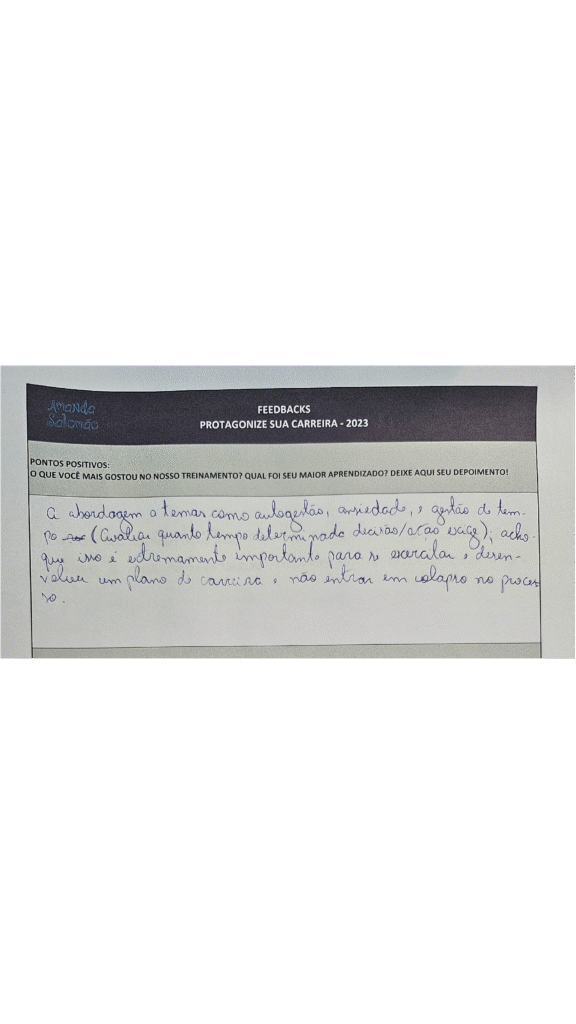 Amanda
Salomão
FEEDBACKS
PROTAGONIZE SUA CARREIRA - 2023
PONTOS POSITIVOS:
O QUE VOCÊ MAIS GOSTOU NO NOSSO TREINAMENTO? QUAL FOI SEU MAIOR APRENDIZADO? DEIXE AQUI SEU DEPOIMENTO!
A abordagem a temas como autogestão, ansiedade, e gestão de tem-
po (Avaliar quanto tempo determinada decisão/ação exige); acho
que isso é extremamente importante para se e desen-
volver um plano de carreira e não entrar em colapso no proces-
so.